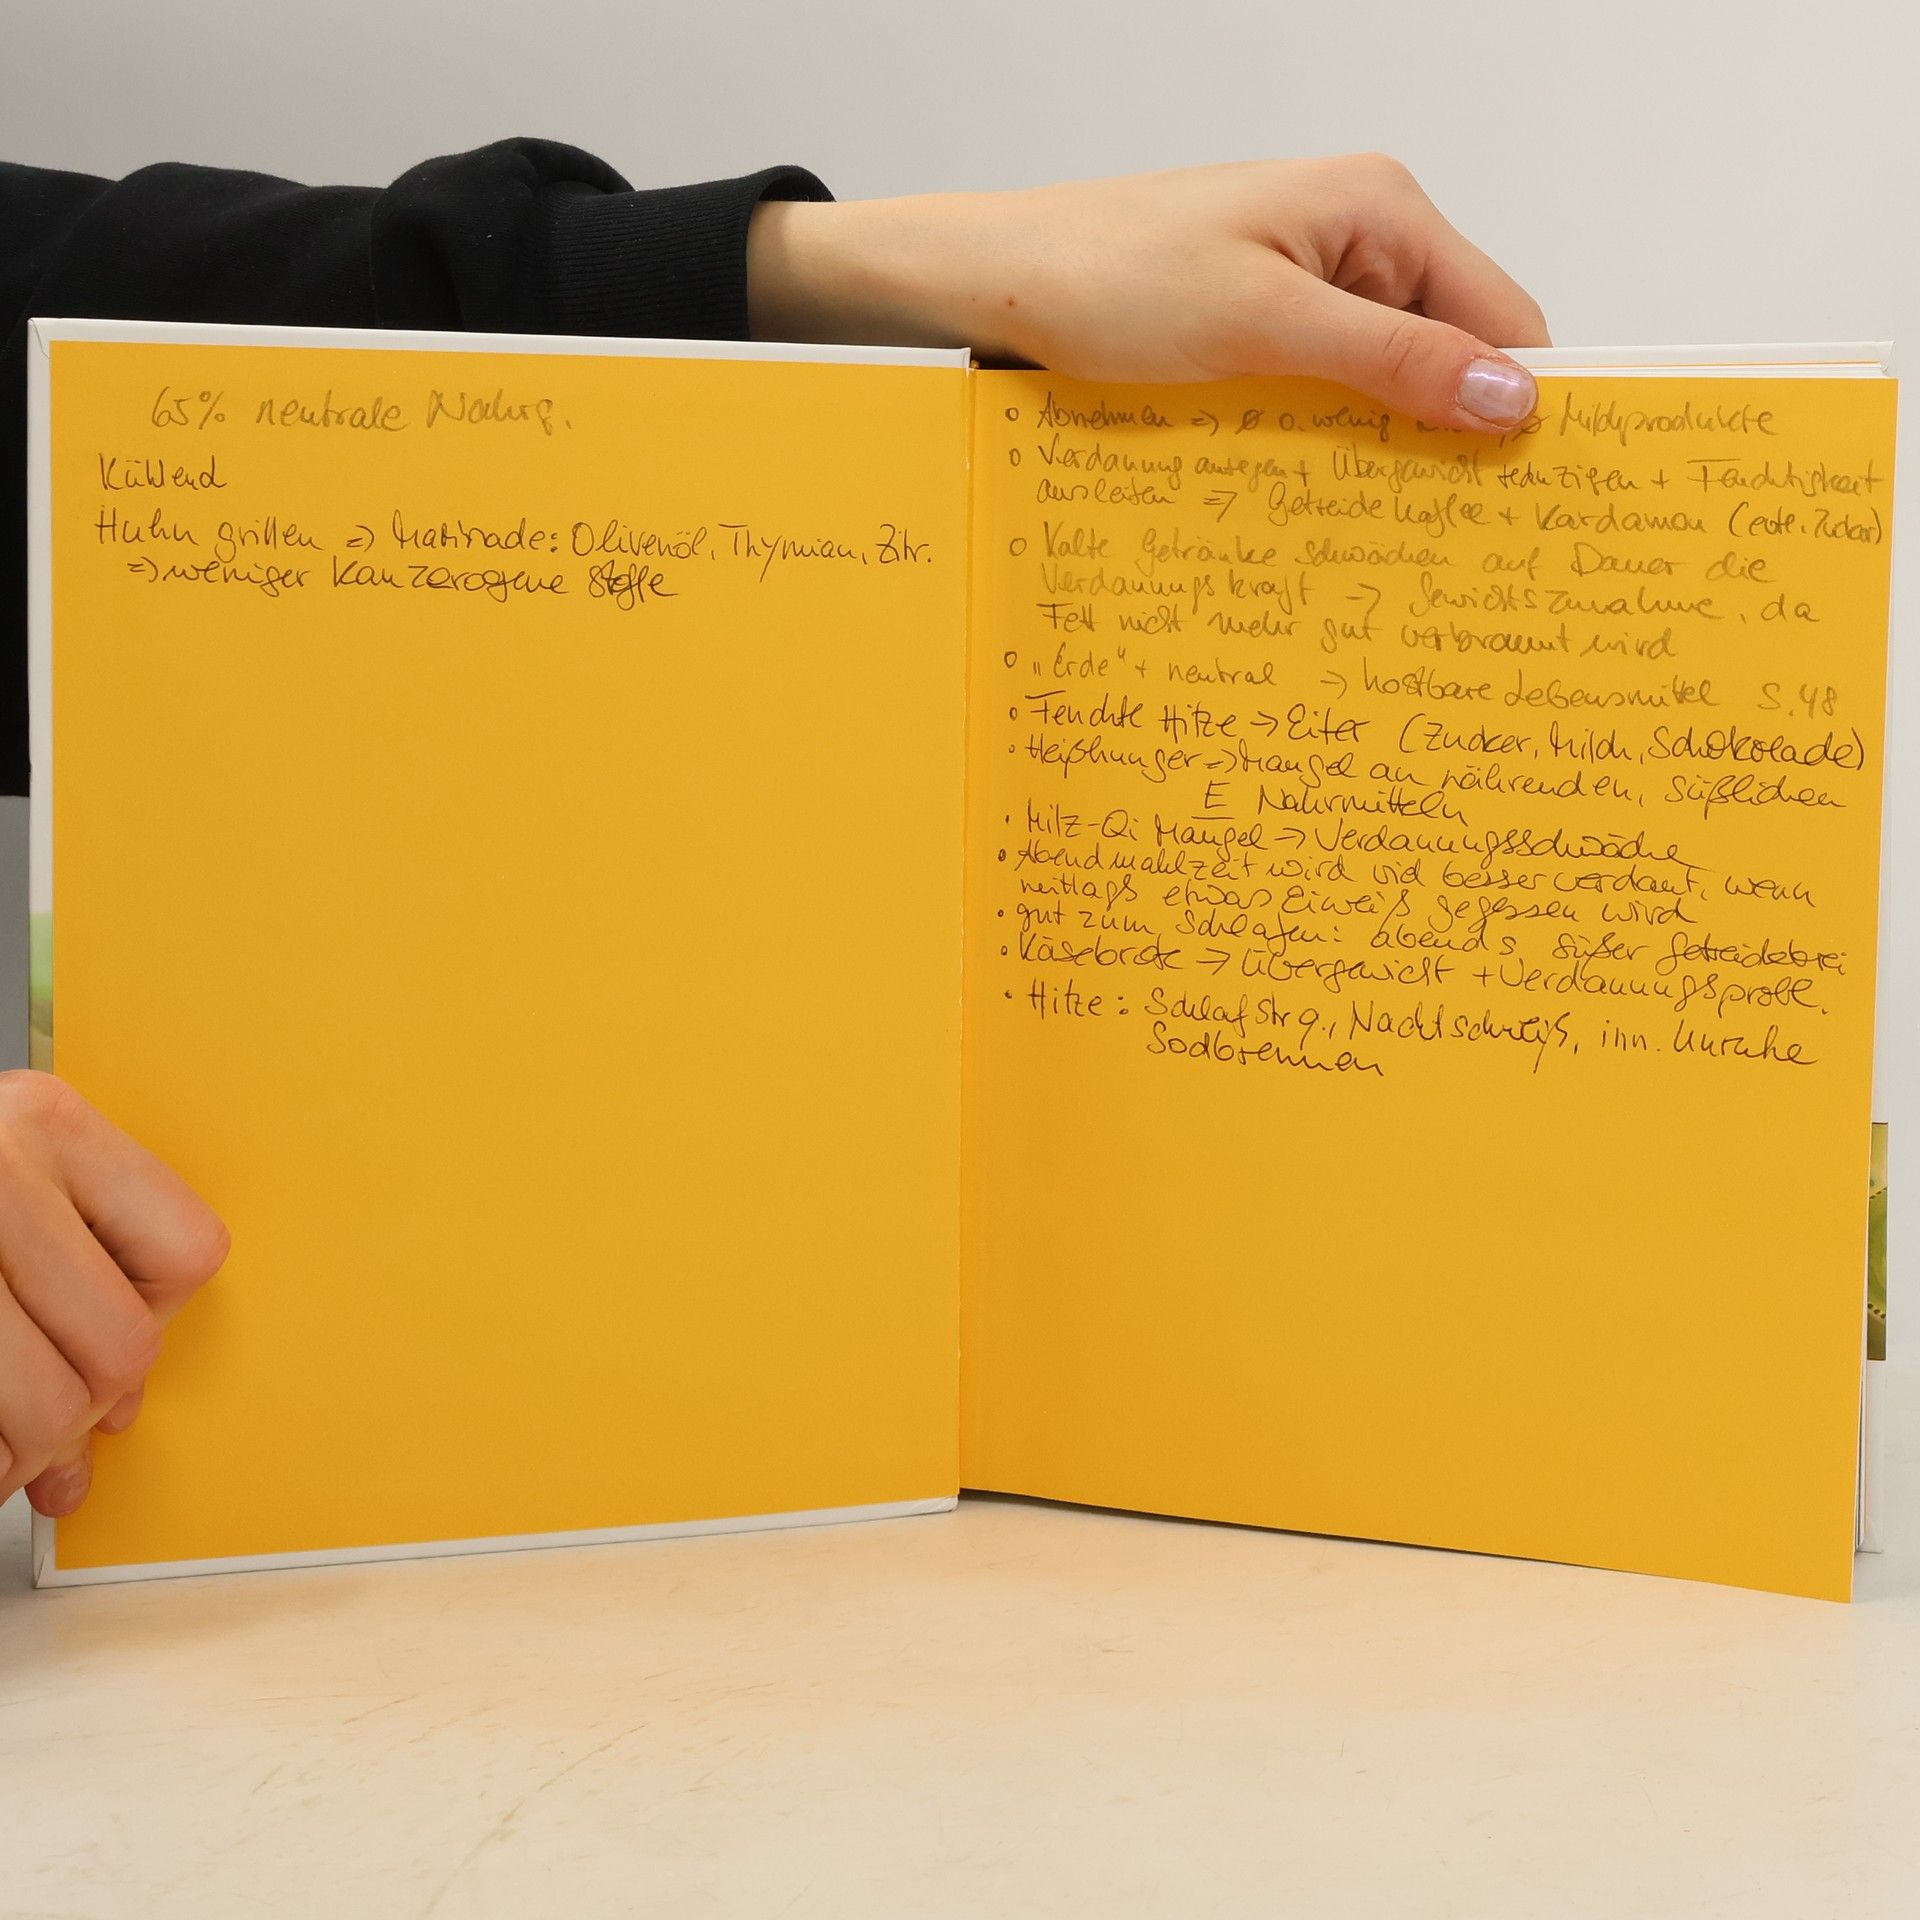 65% neutrale Nahrg.
Kühlend
Huhn grillen => Marinade: Olivenöl, Thymian, Zitr.
=> weniger kanzerogene Stoffe
o Abnehmen => ø o. wenig , ø Milchprodukte
o Verdauung anregen + Übergewicht reduzieren + Feuchtigkeit
ausleiten => Getreidekaffee + Kardamon (evtl. Zucker)
o Kalte Getränke schwächen auf Dauer die
Verdauungskraft -> Gewichtszunahme, da
Fett nicht mehr gut verbrannt wird
o "Erde" + neutral -> kostbare Lebensmittel S. 48
• Feuchte Hitze -> Eiter (Zucker, Milch, Schokolade)
• Heißhunger => Mangel an nährenden, süßlichen
E Nahrmitteln
• Milz-Qi Mangel -> Verdauungsschwäche
• Abendmahlzeit wird viel besser verdaut, wenn
mittags etwas Eiweiß gegessen wird
• gut zum Schlafen: abends süßer Getreidebrei
• Käsebrote -> Übergewicht + Verdauungsprobl.
• Hitze: Schlafstrg., Nachtschweiß, inn. Unruhe
Sodbrennen